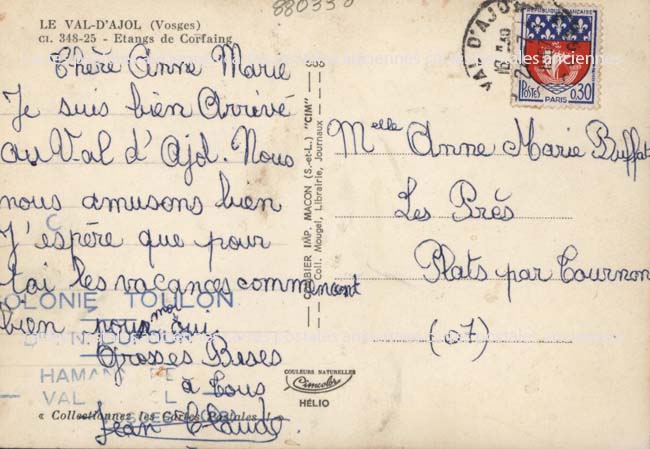 880330
LE VAL-D'AJOL (Vosges)
CI. 348-25 - Etangs de Corfaing
Chère Anne Marie
Je suis bien Arrivé
au Val d'Ajol. Nous
nous amusons bien
J'espère que pour
toi les vacances commencent
bien pour moi oui.
Grosses Bises
à Tous
Jean Claude
COLONIE TOULON
HAM
VAL
« Collectionnez les Cartes Postales ! »
COMBIER IMP. MACON (S.-et-L.) "CIM"
Coll. Mougel, Librairie, Journaux
COULEURS NATURELLES
Cimcolor
HÉLIO
VAL D'AJOL
REPUBLIQUE FRANÇAISE
POSTES 0,30
PARIS
Melle Anne Marie Buffat
Les Prés
Plats par Tournon
(07)